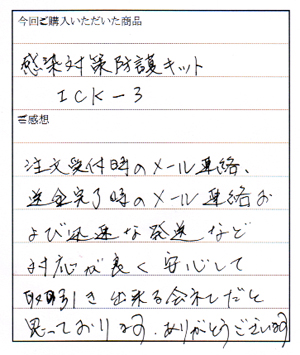 今回ご購入いただいた商品
感染対策防護キット
ICK-3
ご感想
注文受付時のメール連絡、
送金完了時のメール連絡お
よび迅速な発送など
対応が良く安心して
取引き出来る会社だと
思っております。ありがとうございます